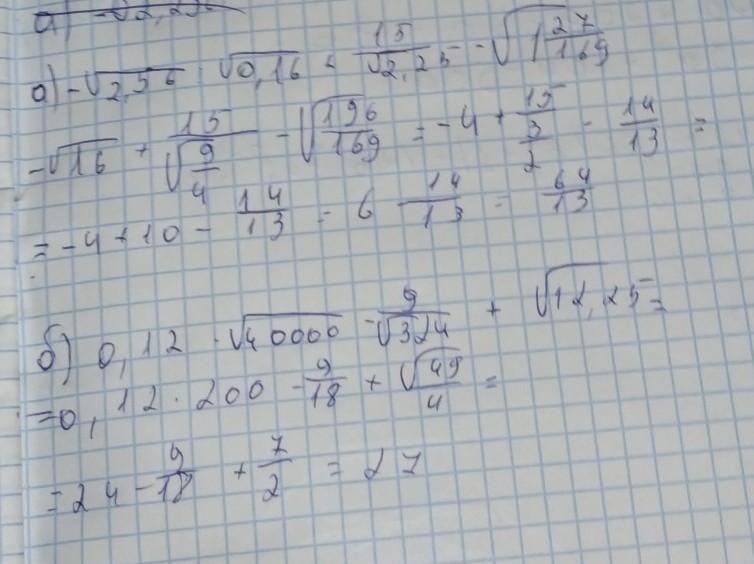 а) -√2,56 : √0,16 + 15/√2,25 - √1 27/169
-√16 + 15/√(9/4) - √(196/169) = -4 + 15/(3/2) - 14/13 =
= -4 + 10 - 14/13 = 6 - 14/13 = 64/13
б) 0,12 · √40000 - 9/√324 + √12,25 =
= 0,12 · 200 - 9/18 + √(49/4) =
= 24 - 9/18 + 7/2 = 27